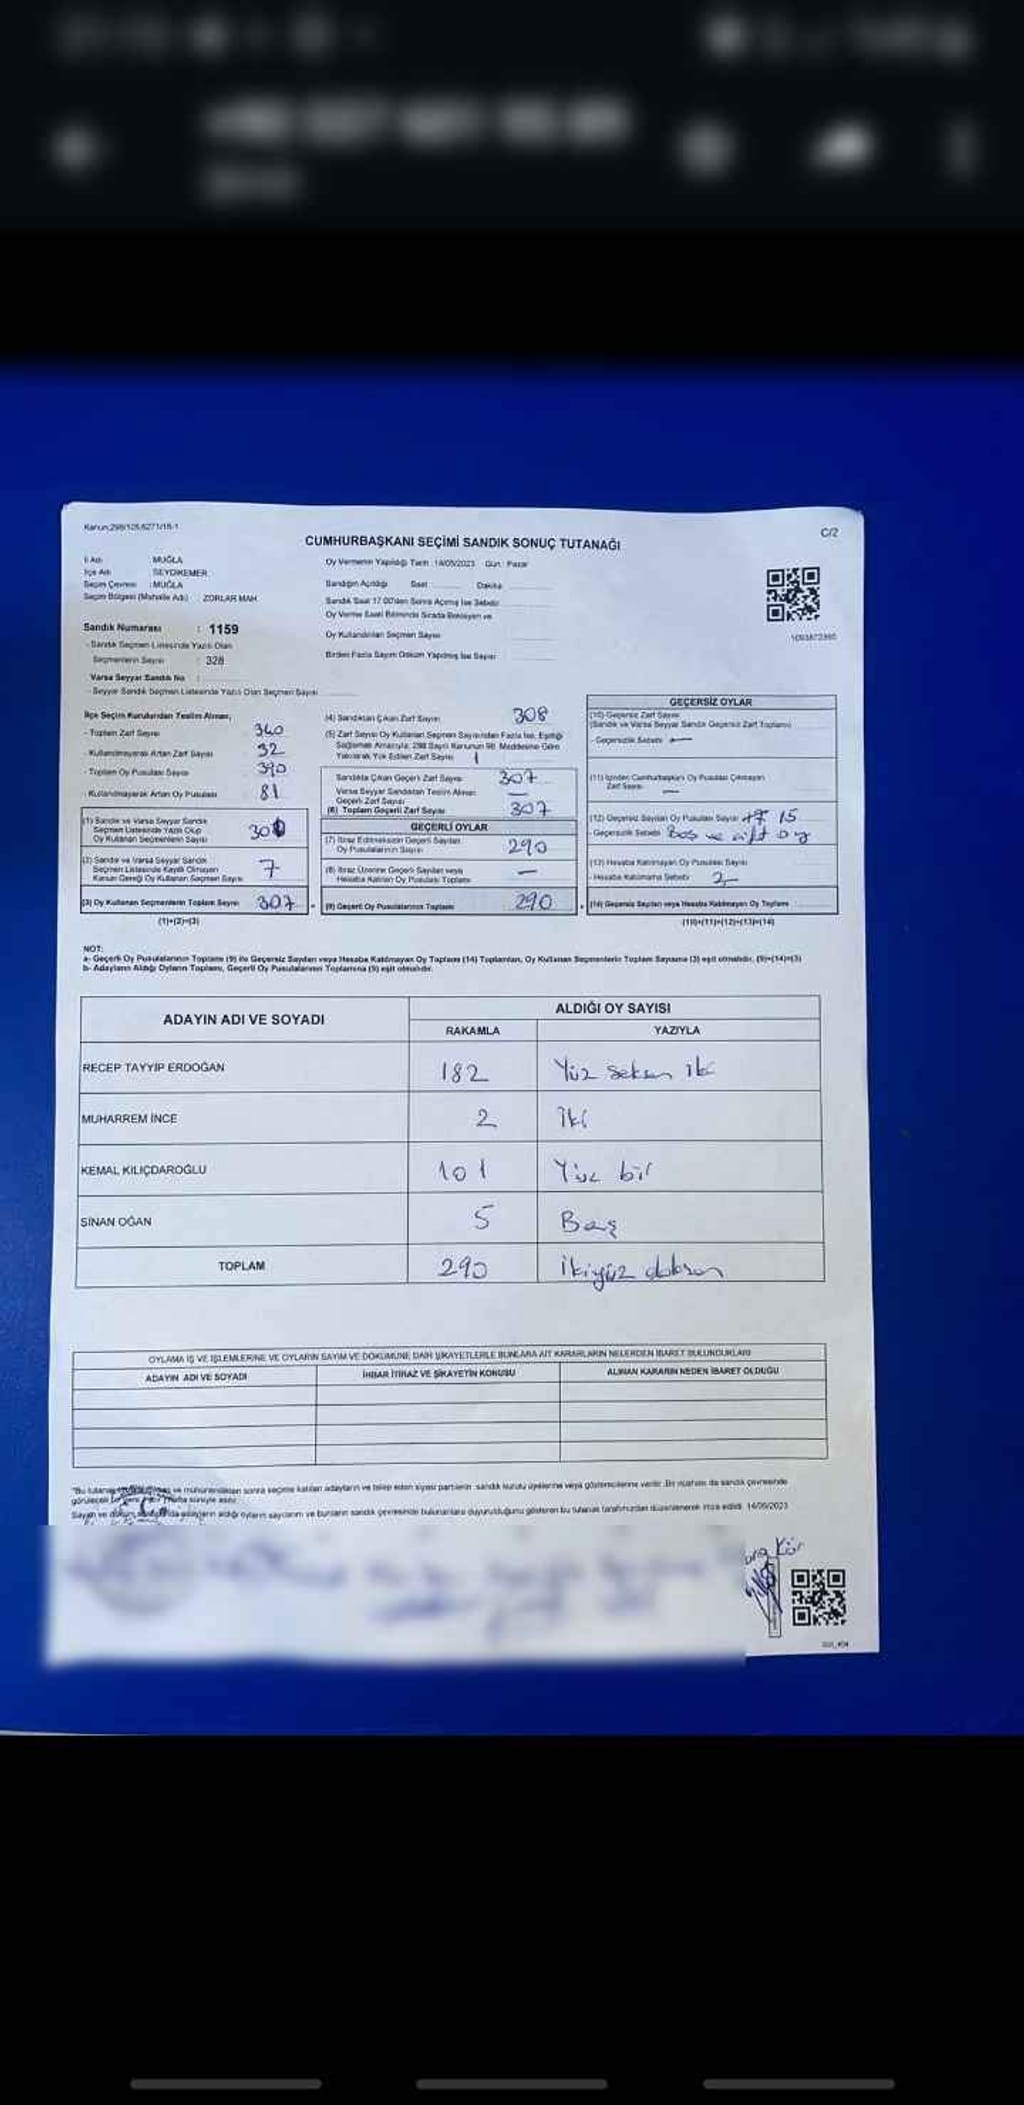 Kanun:298/105,6271/18-1
C/2
CUMHURBAŞKANI SEÇİMİ SANDIK SONUÇ TUTANAĞI
İl Adı : MUĞLA
İlçe Adı : SEYDİKEMER
Seçim Çevresi : MUĞLA
Seçim Bölgesi (Mahalle Adı) : ZORLAR MAH.
Sandık Numarası : 1159
- Sandık Seçmen Listesinde Yazılı Olan
Seçmenlerin Sayısı : 328
Varsa Seyyar Sandık No :
- Seyyar Sandık Seçmen Listesinde Yazılı Olan Seçmen Sayısı
Oy Vermenin Yapıldığı Tarih : 14/05/2023 Gün : Pazar
Sandığın Açıldığı Saat Dakika
Sandık Saat 17.00'den Sonra Açılmış İse Sebebi
Oy Verme Saati Bitiminde Sırada Bekleyen ve
Oy Kullandırılan Seçmen Sayısı
Birden Fazla Sayım Döküm Yapılmış İse Sayısı
İlçe Seçim Kurulundan Teslim Alınan;
- Toplam Zarf Sayısı 340
- Kullanılmayarak Artan Zarf Sayısı 32
- Toplam Oy Pusulası Sayısı 390
- Kullanılmayarak Artan Oy Pusulası 81
(1) Sandık ve Varsa Seyyar Sandık
Seçmen Listesinde Yazılı Olup
Oy Kullanan Seçmenlerin Sayısı 300
(2) Sandık ve Varsa Seyyar Sandık
Seçmen Listesinde Kayıtlı Olmayan
Kanun Gereği Oy Kullanan Seçmen Sayısı 7
(3) Oy Kullanan Seçmenlerin Toplam Sayısı 307
(1)+(2)=(3)
(4) Sandıktan Çıkan Zarf Sayısı 308
(5) Zarf Sayısı Oy Kullanan Seçmen Sayısından Fazla İse, Eşitliği
Sağlamak Amacıyla, 298 Sayılı Kanunun 98. Maddesine Göre
Yakılarak Yok Edilen Zarf Sayısı 1
Sandıkta Çıkan Geçerli Zarf Sayısı 307
Varsa Seyyar Sandıktan Teslim Alınan
Geçerli Zarf Sayısı —
(6) Toplam Geçerli Zarf Sayısı 307
GEÇERLİ OYLAR
(7) İtiraz Edilmeksizin Geçerli Sayılan
Oy Pusulalarının Sayısı 290
(8) İtiraz Üzerine Geçerli Sayılan veya
Hesaba Katılan Oy Pusulası Toplamı —
(9) Geçerli Oy Pusulalarının Toplamı 290
GEÇERSİZ OYLAR
(10) Geçersiz Zarf Sayısı
(Sandık ve Varsa Seyyar Sandık Geçersiz Zarf Toplamı)
- Geçersizlik Sebebi —
(11) İçinden Cumhurbaşkanı Oy Pusulası Çıkmayan
Zarf Sayısı —
(12) Geçersiz Sayılan Oy Pusulası Sayısı 15
- Geçersizlik Sebebi Boş ve çift oy
(13) Hesaba Katılmayan Oy Pusulası Sayısı
- Hesaba Katılmama Sebebi 2
(14) Geçersiz Sayılan veya Hesaba Katılmayan Oy Toplamı
(10)+(11)+(12)+(13)=(14)
NOT:
a- Geçerli Oy Pusulalarının Toplamı (9) ile Geçersiz Sayılan veya Hesaba Katılmayan Oy Toplamı (14) Toplamları, Oy Kullanan Seçmenlerin Toplam Sayısına (3) eşit olmalıdır. (9)+(14)=(3)
b- Adayların Aldığı Oyların Toplamı, Geçerli Oy Pusulalarının Toplamına (9) eşit olmalıdır.
ADAYIN ADI VE SOYADI
ALDIĞI OY SAYISI
RAKAMLA YAZIYLA
RECEP TAYYİP ERDOĞAN 182 Yüz seksen iki
MUHARREM İNCE 2 iki
KEMAL KILIÇDAROĞLU 101 Yüz bir
SİNAN OĞAN 5 Beş
TOPLAM 290 ikiyüz doksan
OYLAMA İŞ VE İŞLEMLERİNE VE OYLARIN SAYIM VE DÖKÜMÜNE DAİR ŞİKAYETLERLE BUNLARA AİT KARARLARIN NELERDEN İBARET BULUNDUKLARI
ADAYIN ADI VE SOYADI İHBAR İTİRAZ VE ŞİKAYETİN KONUSU ALINAN KARARIN NEDEN İBARET OLDUĞU
ve mühürlendikten sonra seçime katılan adayların ve talep eden siyasi partilerin sandık kurulu üyelerine veya gözlemcilerine verilir. Bir nüshası da sandık çevresinde
görülecek bir yere hafta süreyle asılır.
Sayım ve döküm adayların aldığı oyların sayılarını ve bunların sandık çevresinde bulunanlara duyurulduğunu gösteren bu tutanak tarafımızdan düzenlenerek imza edildi. 14/05/2023